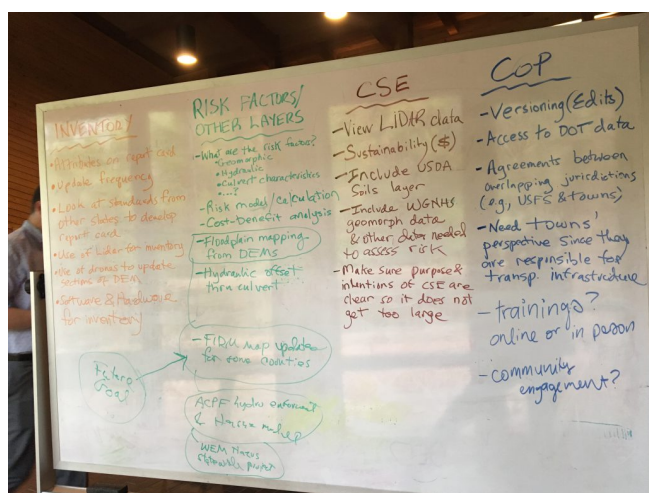 INVENTORY
• Attributes on report card
• Update frequency
• Look at standards from
other states to develop
report card
• Use of Lidar for inventory
• Use of drones to update
sections of DEM
• Software & Hardware
for inventory
Future
Goal
RISK FACTORS/
OTHER LAYERS
- What are the risk factors?
• Geomorphic
• Hydraulic
• Culvert characteristics
• ...?
- Risk model/calculation
- Cost-benefit analysis
- Floodplain mapping
from DEMs
- Hydraulic offset
thru culvert
- FIRM map updates
for some counties
ACPF hydro enforcement
&
WEM
statewide project
CSE
- View LIDAR data
- Sustainability ($)
- Include USDA
Soils layer
- Include WGNHS
geomorph data
& other data needed
to assess risk
- Make sure purpose &
intentions of CSE are
clear so it does not
get too large
COP
- Versioning (Edits)
- Access to DOT data
- Agreements between
overlapping jurisdictions
(e.g., USFS & towns)
- Need towns'
perspective since they
are responsible for
transp. infrastructure
- trainings?
online or in person
- community
engagement?